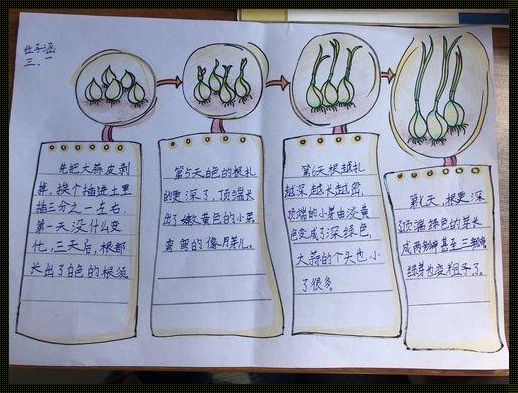 三、一
先把大蒜皮剥
掉,挨个插进土里
插三分之一左右,
第一天没什么变
化,三天后,根部
长出了白色的根须。
第5天白色的根扎
的更深了,顶端长
出了嫩黄色的小芽
弯弯的像月牙儿。
第6天根越扎
越深越长越密
顶端的小芽由淡黄
色变成了深绿色,
大蒜的个头也小
了很多。
天,根更深
了顶端绿色的芽长
成两瓣甚至三瓣
绿芽也变粗了。